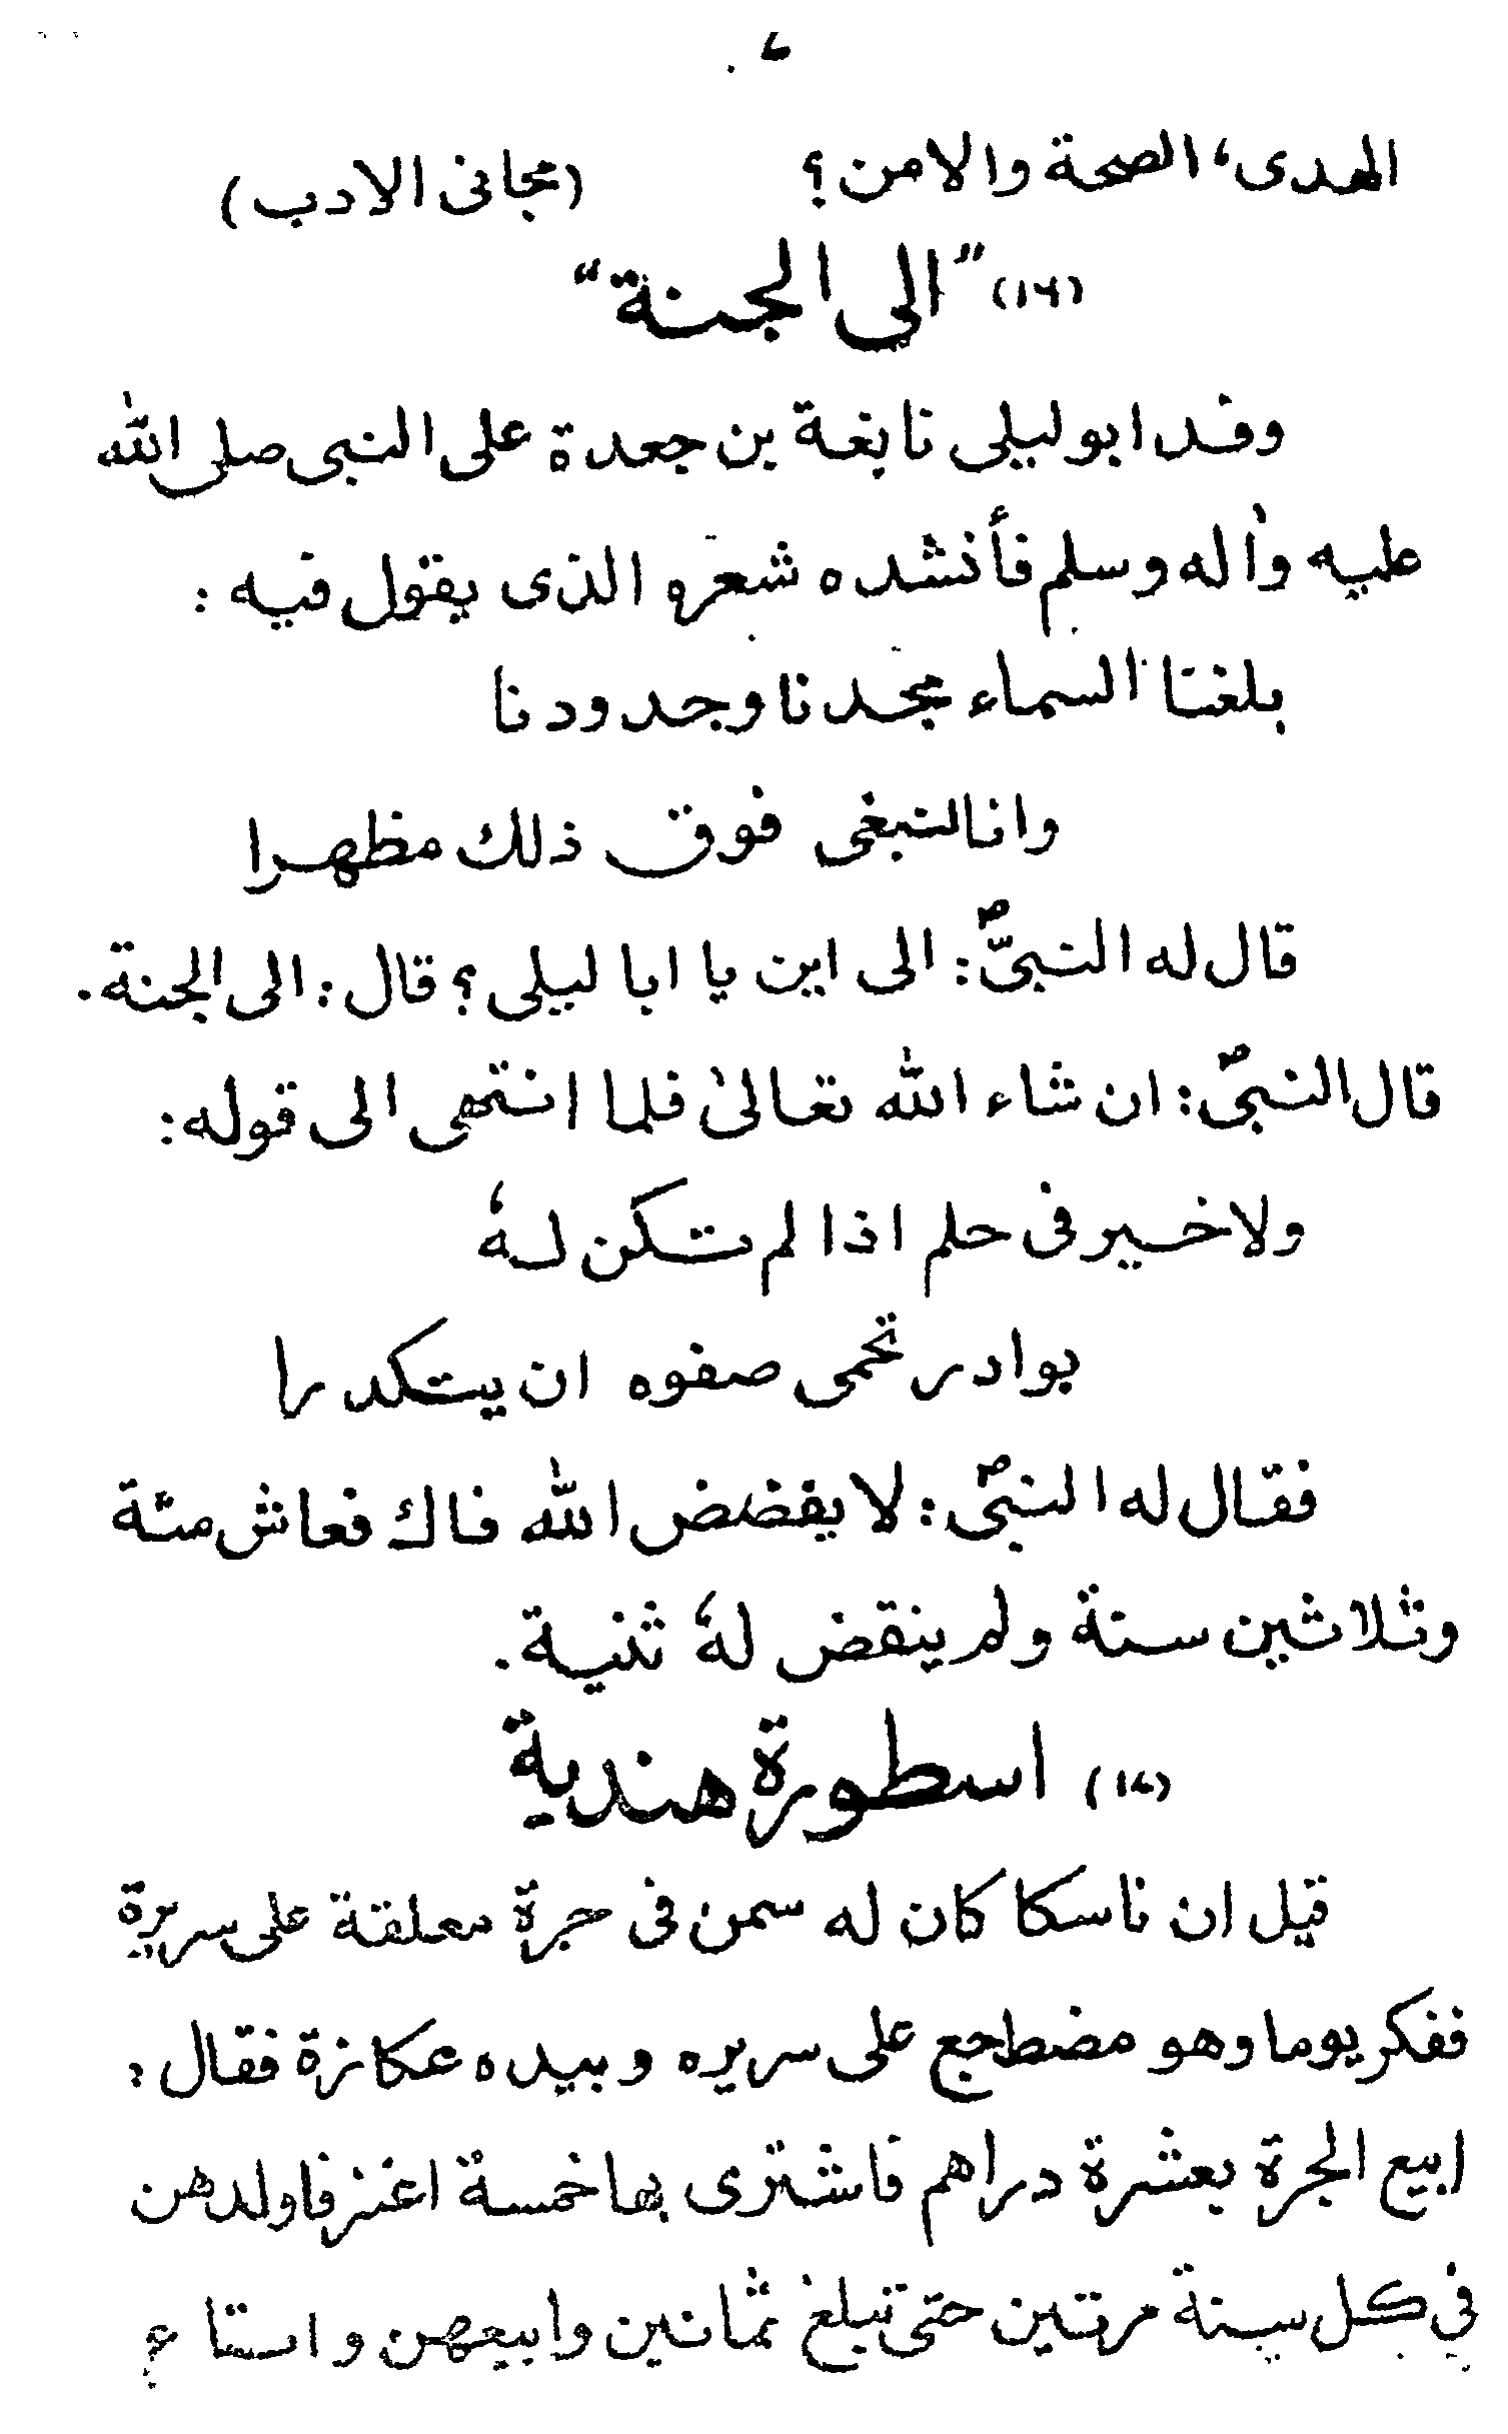 ۷
المهدى، الصحة والامن؟ (مجانى الادب)
(۱۶) "الى الجنة"
وفد ابو ليلى نابغة بن جعدة على النبى صلى الله
عليه واٰله وسلم فأنشده شعره الذى يقول فيه :
بلغنا السماء مجدنا وجدودنا
وانا لنبغى فوق ذلك مظهرا
قال له النبىّؐ: الى اين يا ابا ليلى؟ قال: الى الجنة.
قال النبىؐ: ان شاء الله تعالىٰ فلما انتهى الى قوله:
ولا خير فى حلم اذا لم تكن لهٗ
بوادر تحمى صفوه ان يتكدرا
فقال له النبىؐ: لا يفضض الله فاك فعاش مئة
وثلاثين سنة ولم ينقض لهٗ ثنية.
(۱۷) اسطورة هندية
قيل ان ناسكا كان له سمن فى جرة معلقة على سريرة
ففكر يوما وهو مضطجع على سريره وبيده عكازة فقال:
ابيع الجرة بعشرة دراهم فاشترى بها خمسة اعنز فاولدهن
فى كل سنة مرتين حتى تبلغ ثمانين وابيعهن و